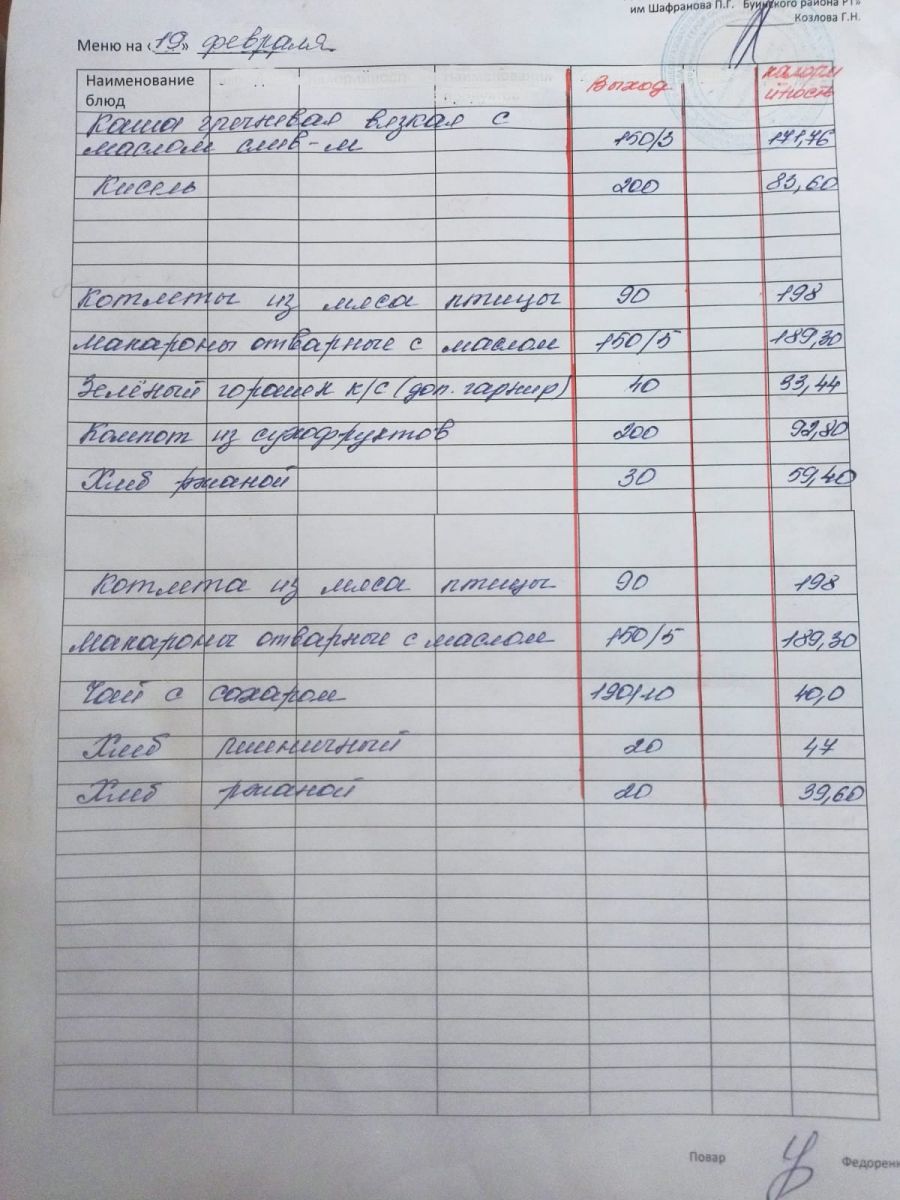 им Шафранова П.Г. Буинского района РТ»
Козлова Г.Н.
Меню на «19» февраля
Наименование блюд Выход калорийность
Каша гречневая вязкая с
маслом слив-м 150/3 171,76
Кисель 200 83,60
Котлеты из мяса птицы 90 198
Макароны отварные с маслом 150/5 189,30
Зелёный горошек к/с (доп. гарнир) 40 33,44
Компот из сухофруктов 200 92,80
Хлеб ржаной 30 59,40
Котлета из мяса птицы 90 198
Макароны отварные с маслом 150/5 189,30
Чай с сахаром 190/10 40,0
Хлеб пшеничный 20 47
Хлеб ржаной 20 39,60
Повар Федорен